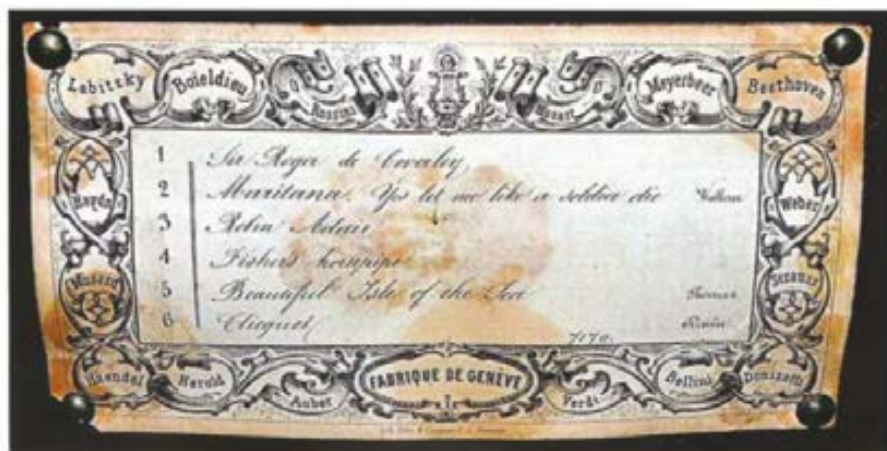 Labitzky Boieldieu Rossini Mozart Meyerbeer Beethoven
Haydn Weber
Musard Strauss
1 Sir Roger de Coverley
2 Maritana. Yes let me like a soldier die Wallace
3 Robin Adair
4 Fishers hornpipe
5 Beautiful Isle of the Sea Thomas
6 Clicquot Rivière
7170
Haendel Herold Auber FABRIQUE DE GENÈVE Verdi Bellini Donizetti